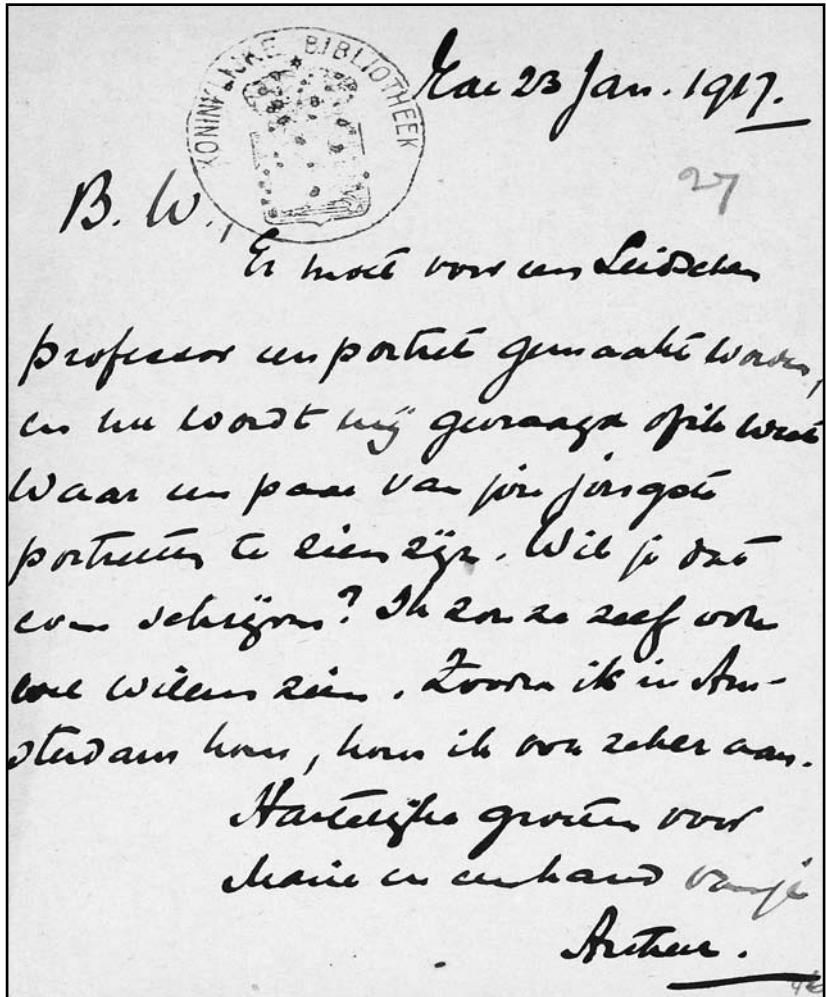 KONINKLIJKE BIBLIOTHEEK
23 Jan. 1917.
27
B. W.,
Er moet voor een Leidschen
professor een portret gemaakt worden,
en nu wordt mij gevraagd of ik weet
waar een paar van jou jongste
portretten te zien zijn. Wil je dat
even schrijven? Ik zou ze zelf ook
wel willen zien. Zoodra ik in Am-
sterdam kom, kom ik ook zeker aan.
Hartelijke groeten voor
Marie en een hand van je
Arthur.